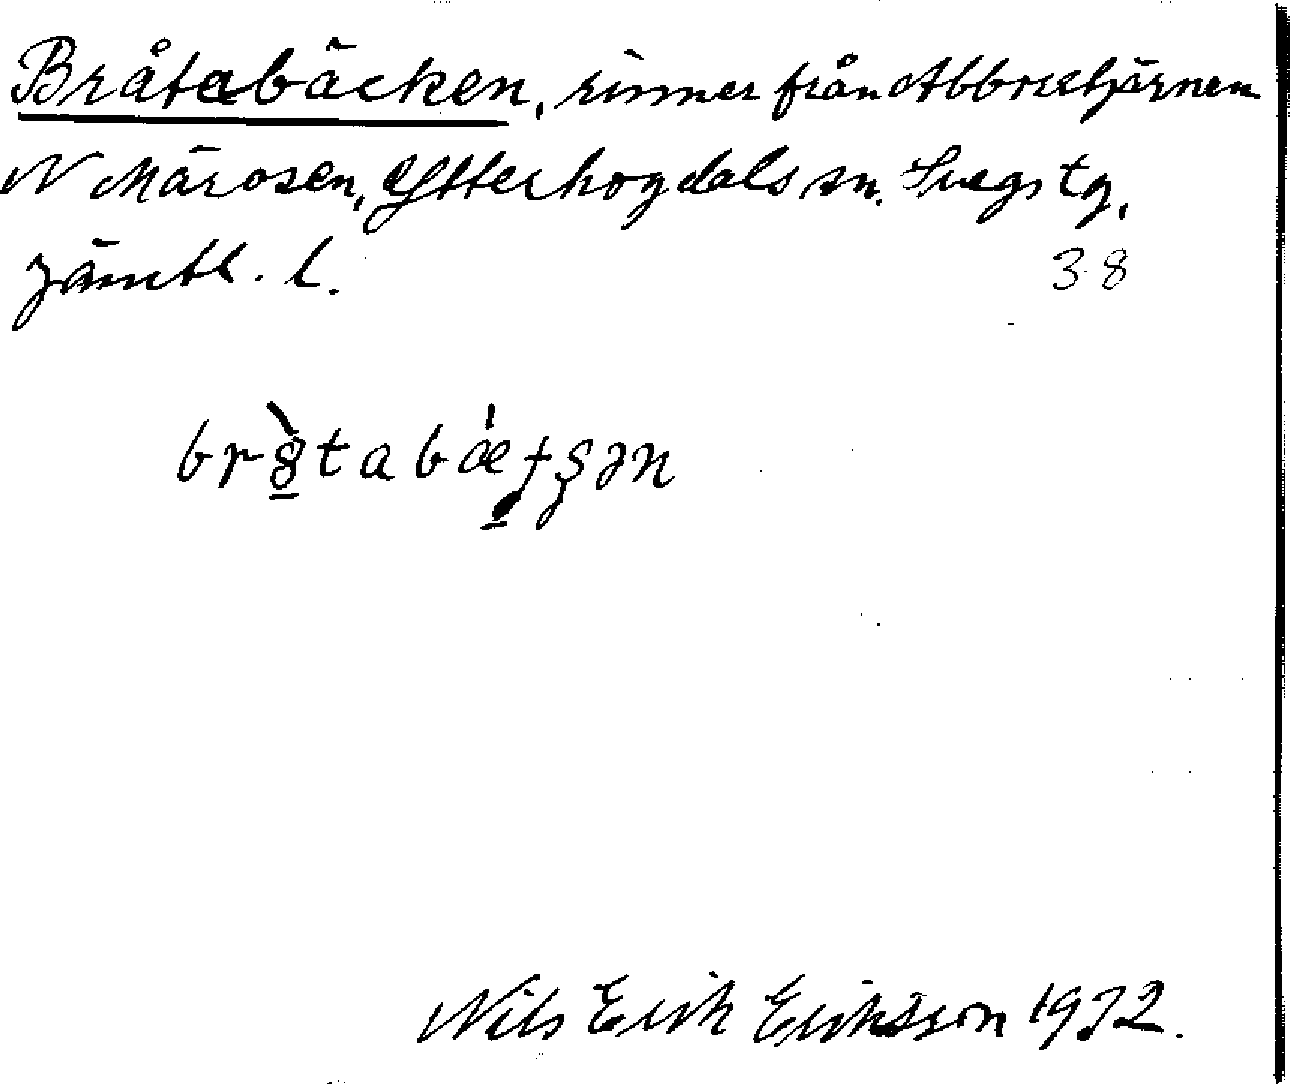 Bråtabäcken, rinner från Abborrtjärnen
N Märosen, Ytterhogdals sn. Svegs tg,
Jämtl. l.
38
Nils Erik Eriksson 1932.